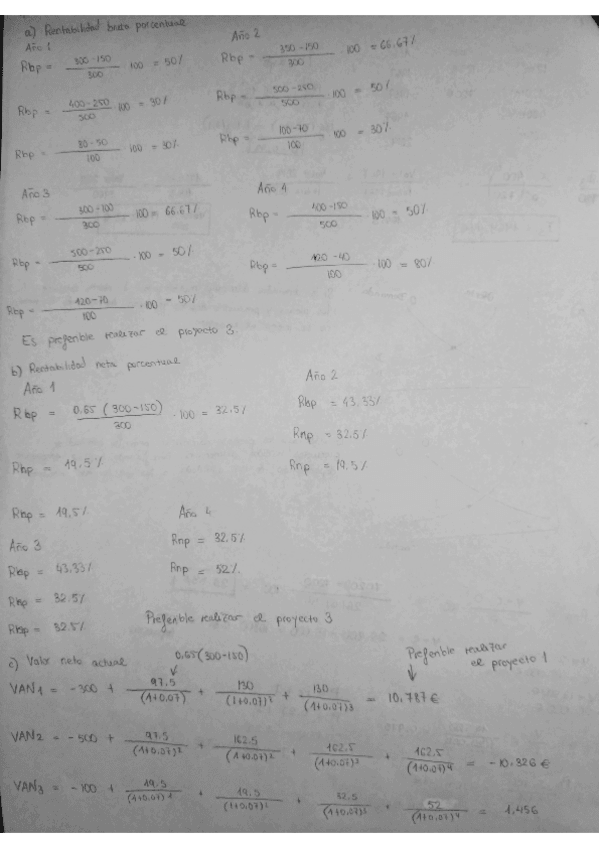 a) Rentabilidad bruta porcentual
Año 1
Rbp = 300-150 / 300 · 100 = 50%
Rbp = 400-250 / 500 · 100 = 30%
Rbp = 80-50 / 100 · 100 = 30%
Año 2
Rbp = 350-150 / 300 · 100 = 66.67%
Rbp = 500-250 / 500 · 100 = 50%
Rbp = 100-70 / 100 · 100 = 30%
Año 3
Rbp = 300-100 / 300 · 100 = 66.67%
Rbp = 500-250 / 500 · 100 = 50%
Rbp = 120-70 / 100 · 100 = 50%
Año 4
Rbp = 400-150 / 500 · 100 = 50%
Rbp = 120-40 / 100 · 100 = 80%
Es preferible realizar el proyecto 3
b) Rentabilidad neta porcentual
Año 1
Rbp = 0.65 (300-150) / 300 · 100 = 32.5%
Rbp = 19.5%
Rnp = 19.5%
Año 2
Rbp = 43.33%
Rnp = 32.5%
Rnp = 19.5%
Año 3
Rbp = 43.33%
Rbp = 32.5%
Rbp = 32.5%
Año 4
Rnp = 32.5%
Rnp = 52%
Preferible realizar el proyecto 3
c) Valor neto actual
0.65(300-150)
Preferible realizar
el proyecto 1
VAN1 = -300 + 97.5 / (1+0.07) + 130 / (1+0.07)² + 130 / (1+0.07)3 = 10.787 €
VAN2 = -500 + 97.5 / (1+0.07)1 + 162.5 / (1+0.07)2 + 162.5 / (1+0.07)3 + 162.5 / (1+0.07)4 = -10.326 €
VAN3 = -100 + 19.5 / (1+0.07)1 + 19.5 / (1+0.07)2 + 32.5 / (1+0.07)3 + 52 / (1+0.07)4 = 1.456